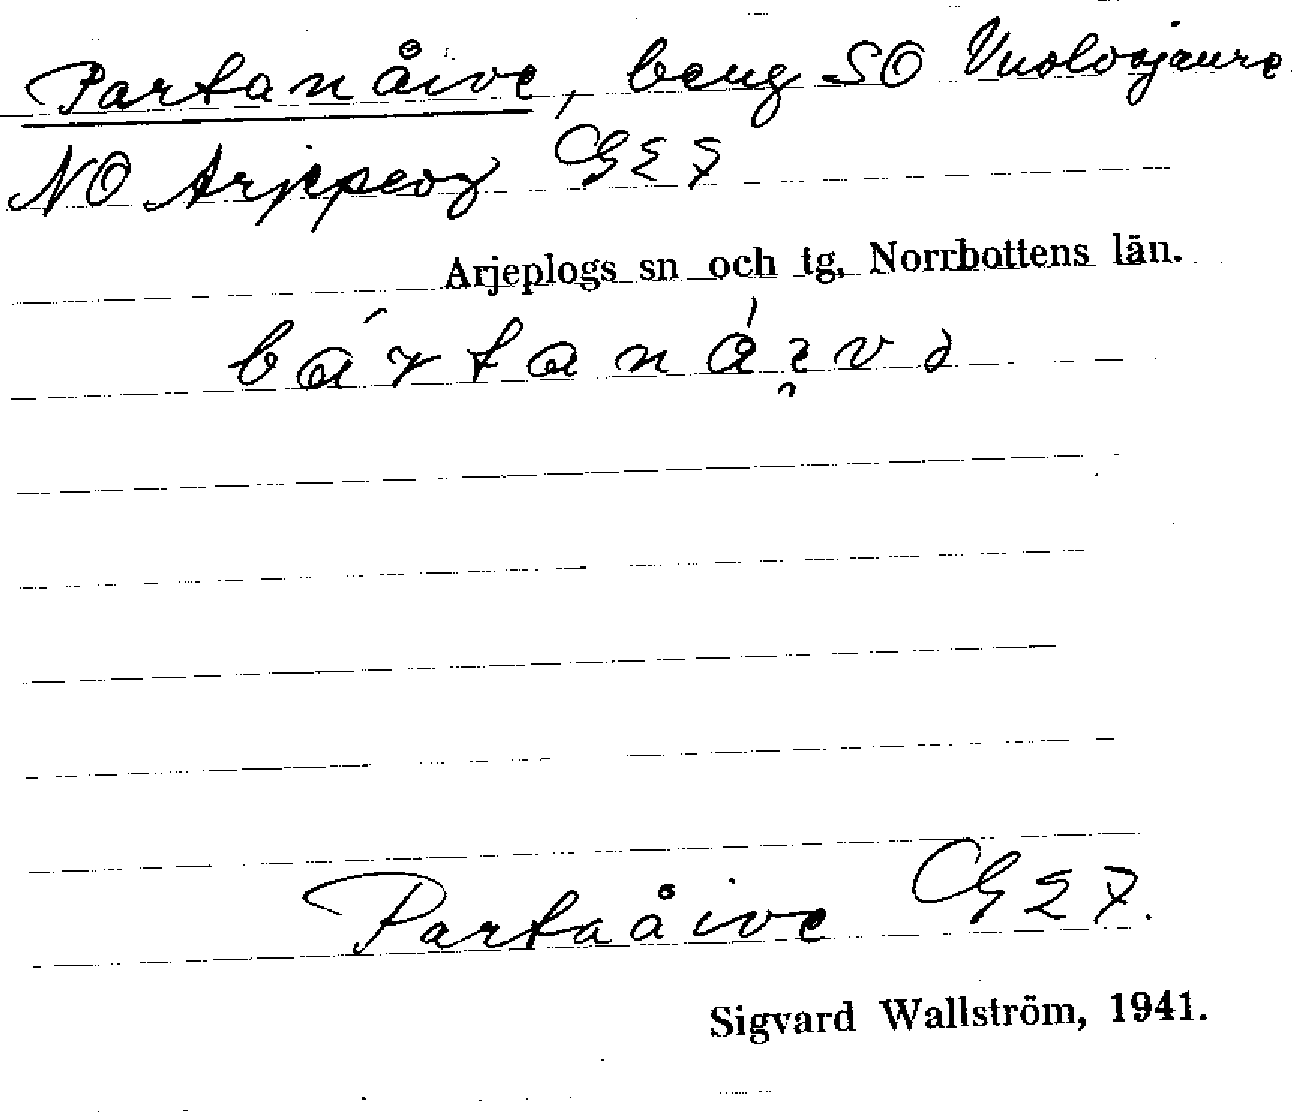 Partanåive, berg SO Vuolvojaure
NO Arjeplog GEZ
Arjeplogs sn och tg, Norrbottens län.
Partaåive GEZ.
Sigvard Wallström, 1941.